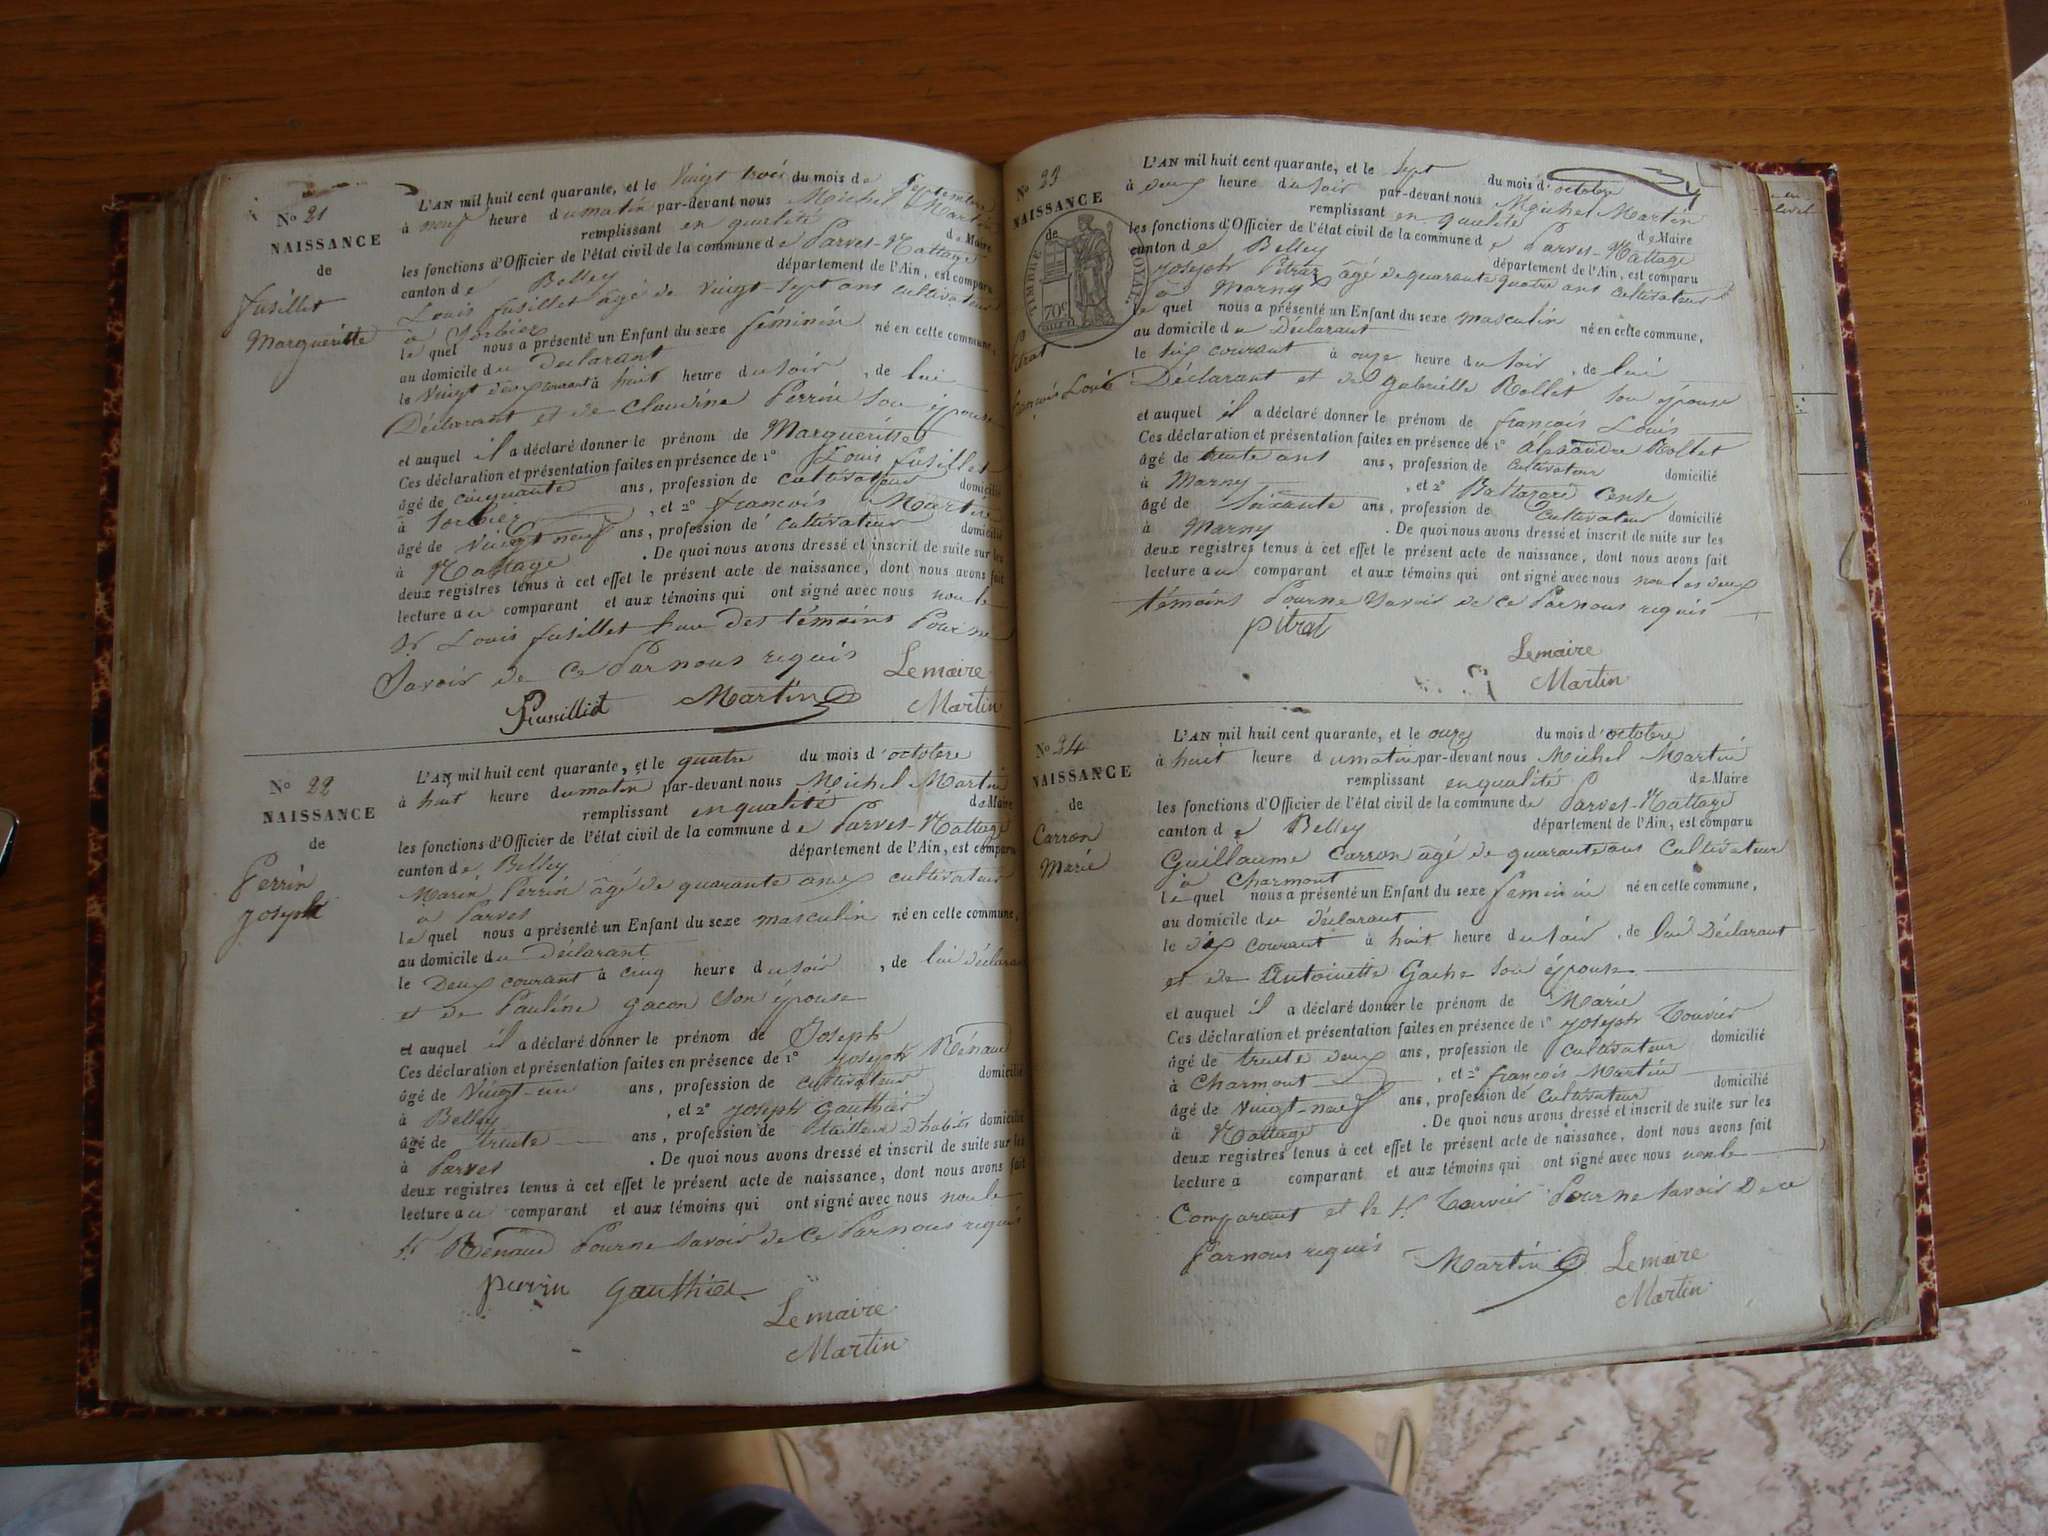 N° 21
NAISSANCE
de
fusillet
Margueritte
L'AN mil huit cent quarante, et le Vingt trois du mois de Septembre
à neuf heure du matin par-devant nous Michel Martin
remplissant en qualité de Maire
les fonctions d'Officier de l'état civil de la commune de Parves-Nattage
canton de Belley département de l'Ain, est comparu
Louis fusillet âgé de Vingt-Sept ans cultivateur
à Sorbier
le quel nous a présenté un Enfant du sexe féminin né en cette commune,
au domicile du Declarant
le Vingt deux courant à huit heure du Soir, de lui
Déclarant et de Claudine Perrin Son épouse
et auquel il a déclaré donner le prénom de Margueritte
Ces déclaration et présentation faites en présence de 1° Louis fusillet
âgé de cinquante ans, profession de cultivateur domicilié
à Sorbier, et 2° françois Martin
âgé de Vingt neuf ans, profession de cultivateur domicilié
à Nattage. De quoi nous avons dressé et inscrit de suite sur les
deux registres tenus à cet effet le présent acte de naissance, dont nous avons fait
lecture au comparant et aux témoins qui ont signé avec nous non le
Sr Louis fusillet l'un des témoins Pour ne
Savoir de ce Par nous requis Lemaire
Martin Martin
N° 22
NAISSANCE
de
Perrin
Joseph
L'AN mil huit cent quarante, et le quatre du mois d'octobre
à huit heure du matin par-devant nous Michel Martin
remplissant en qualité de Maire
les fonctions d'Officier de l'état civil de la commune de Parves-Nattage
canton de Belley département de l'Ain, est comparu
Marin Perrin âgé de quarante ans cultivateur
à Parves
le quel nous a présenté un Enfant du sexe masculin né en cette commune,
au domicile du Déclarant
le Deux courant à cinq heure du Soir, de lui déclarant
et de Pauline Gacon Son épouse
et auquel il a déclaré donner le prénom de Joseph
Ces déclaration et présentation faites en présence de 1° Joseph Rénaud
âgé de Vingt-un ans, profession de cultivateur domicilié
à Belley, et 2° Joseph Gauthier
âgé de trente ans, profession de tailleur d'habits domicilié
à Parves. De quoi nous avons dressé et inscrit de suite sur les
deux registres tenus à cet effet le présent acte de naissance, dont nous avons fait
lecture au comparant et aux témoins qui ont signé avec nous non le
Sr Rénaud Pour ne Savoir de Ce Par nous requis
perrin Gauthier
Lemaire
Martin
N° 23
NAISSANCE
de
TIMBRE ROYAL
70c
Pitrat
françois Louis
L'AN mil huit cent quarante, et le Sept du mois d'octobre
à deux heure du Soir par-devant nous Michel Martin
remplissant en qualité de Maire
les fonctions d'Officier de l'état civil de la commune de Parves-Nattage
canton de Belley département de l'Ain, est comparu
Joseph Pitrat âgé de quarante quatre ans cultivateur
à Marny
le quel nous a présenté un Enfant du sexe masculin né en cette commune,
au domicile du Déclarant
le Six courant à onze heure du Soir, de lui
Déclarant et de Gabrielle Rollet Son épouse
et auquel il a déclaré donner le prénom de françois Louis
Ces déclaration et présentation faites en présence de 1° Alexandre Rollet
âgé de trente ans ans, profession de Cultivateur domicilié
à Marny, et 2° Baltazard
âgé de Soixante ans, profession de Cultivateur domicilié
à Marny. De quoi nous avons dressé et inscrit de suite sur les
deux registres tenus à cet effet le présent acte de naissance, dont nous avons fait
lecture au comparant et aux témoins qui ont signé avec nous non les deux
témoins Pour ne Savoir de ce Par nous requis
pitrat
Lemaire
Martin
N° 24
NAISSANCE
de
Carron
Marie
L'AN mil huit cent quarante, et le onze du mois d'octobre
à huit heure du matin par-devant nous Michel Martin
remplissant en qualité de Maire
les fonctions d'Officier de l'état civil de la commune de Parves-Nattage
canton de Belley département de l'Ain, est comparu
Guillaume Carron âgé de quarante ans Cultivateur
à Charmont
le quel nous a présenté un Enfant du sexe feminin né en cette commune,
au domicile du Déclarant
le dix courant à huit heure du Soir, de lui Déclarant
et de Antoinette Gache Son épouse
et auquel il a déclaré donner le prénom de Marie
Ces déclaration et présentation faites en présence de 1° Joseph Touvier
âgé de trente deux ans, profession de Cultivateur domicilié
à Charmont, et 2° françois Martin
âgé de Vingt-neuf ans, profession de Cultivateur domicilié
à Nattage. De quoi nous avons dressé et inscrit de suite sur les
deux registres tenus à cet effet le présent acte de naissance, dont nous avons fait
lecture a comparant et aux témoins qui ont signé avec nous non le
Comparant et le Sr Touvier Pour ne Savoir De ce
Par nous requis Martin Lemaire
Martin